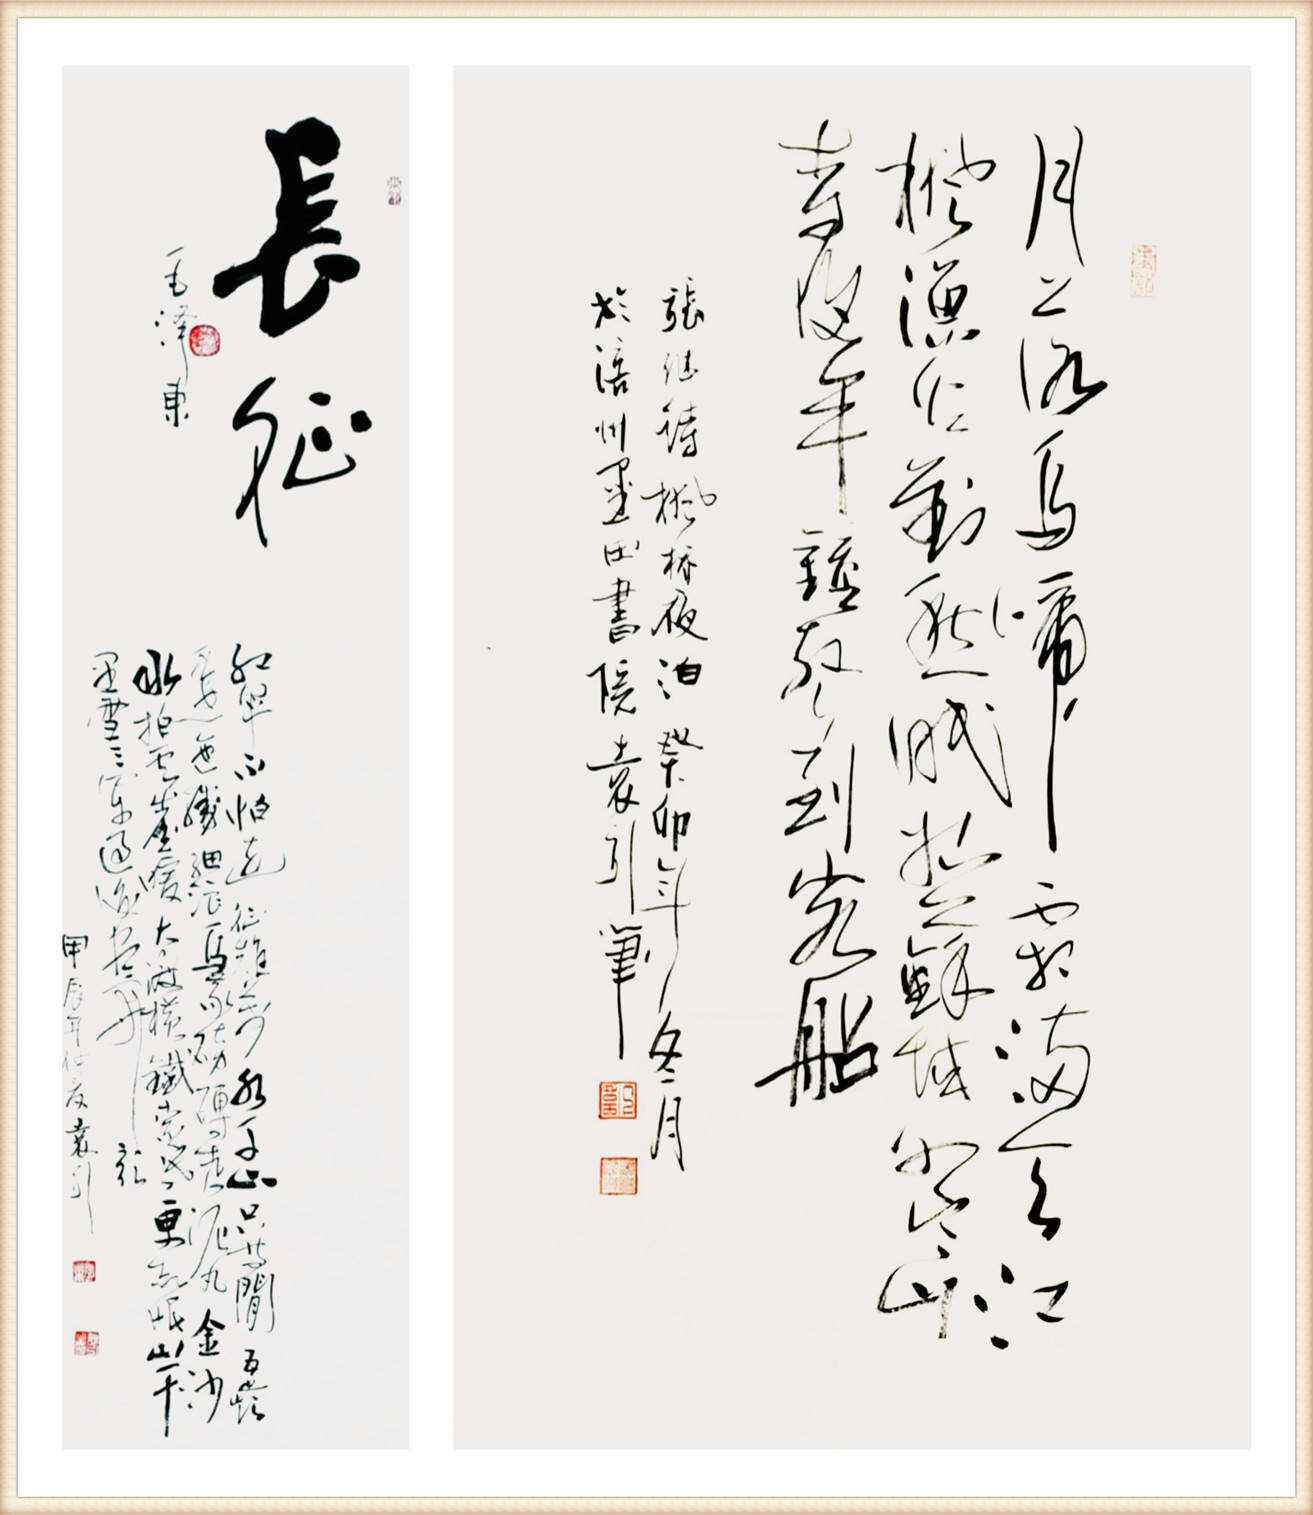 月落烏啼霜滿天江
楓漁火對愁眠姑蘇城外寒山
寺夜半鐘聲到客船
張继詩楓橋夜泊癸卯年冬月
於涪州墨田書院袁引筆
長征
毛澤東
紅軍不怕遠征難萬水千山只等閒五嶺
逶迤騰細浪烏蒙磅礴走泥丸金沙
水拍雲崖暖大渡橋橫鐵索寒更喜岷山千
里雪三軍過後盡開顏
甲辰年仲夏袁引